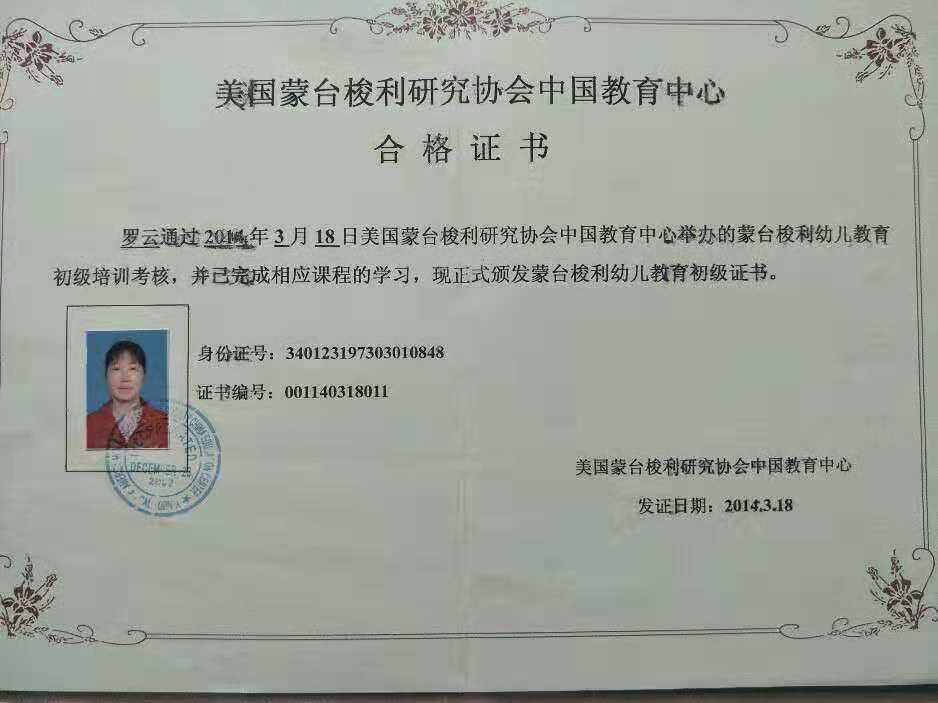 美国蒙台梭利研究协会中国教育中心
合格证书
罗云通过 2014 年 3 月 18 日美国蒙台梭利研究协会中国教育中心举办的蒙台梭利幼儿教育
初级培训考核，并已完成相应课程的学习，现正式颁发蒙台梭利幼儿教育初级证书。
身份证号：340123197303010848
证书编号：001140318011
DECEMBER
美国蒙台梭利研究协会中国教育中心
发证日期：2014.3.18